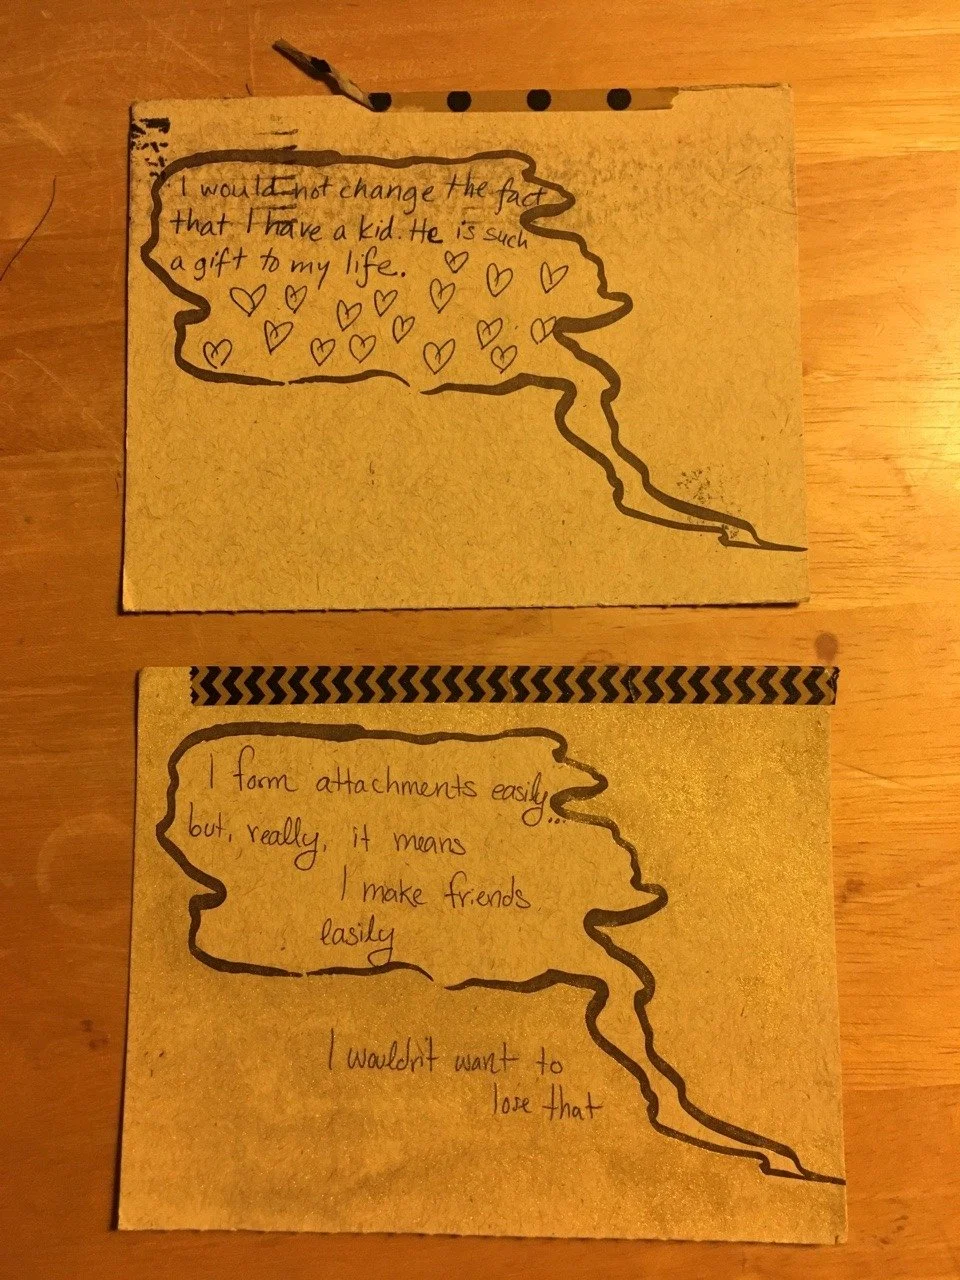 I would not change the fact
that I have a kid. He is such
a gift to my life.
I form attachments easily...
but, really, it means
I make friends
easily
I wouldn't want to
lose that